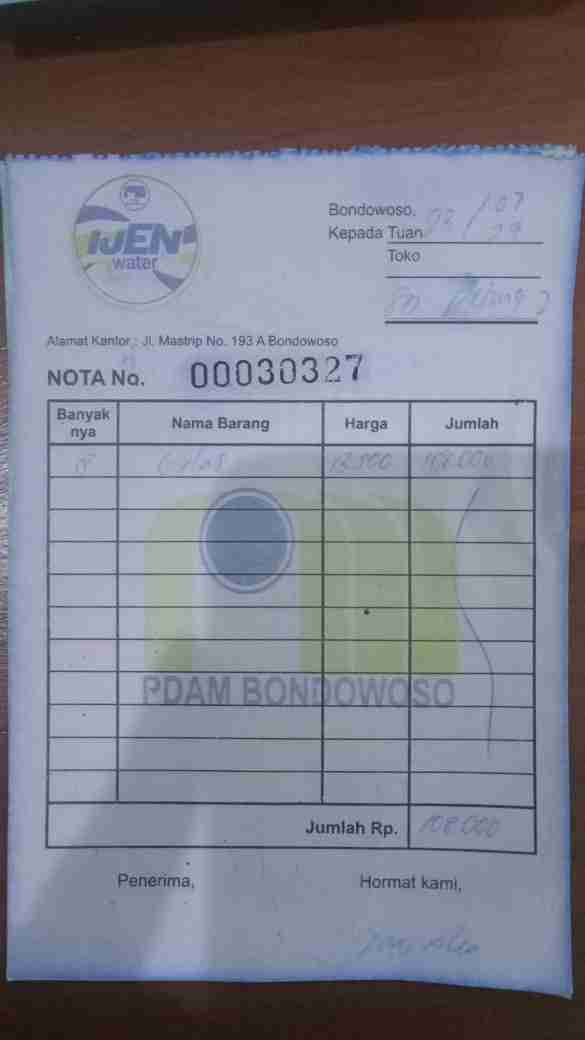 IJEN
water
Bondowoso, 02/07
Kepada Tuan
Toko
Alamat Kantor : Jl. Mastrip No. 193 A Bondowoso
NOTA No. 00030327
Banyak nya Nama Barang Harga Jumlah
8 Gelas 108.000
PDAM BONDOWOSO
Jumlah Rp. 108.000
Penerima, Hormat kami,